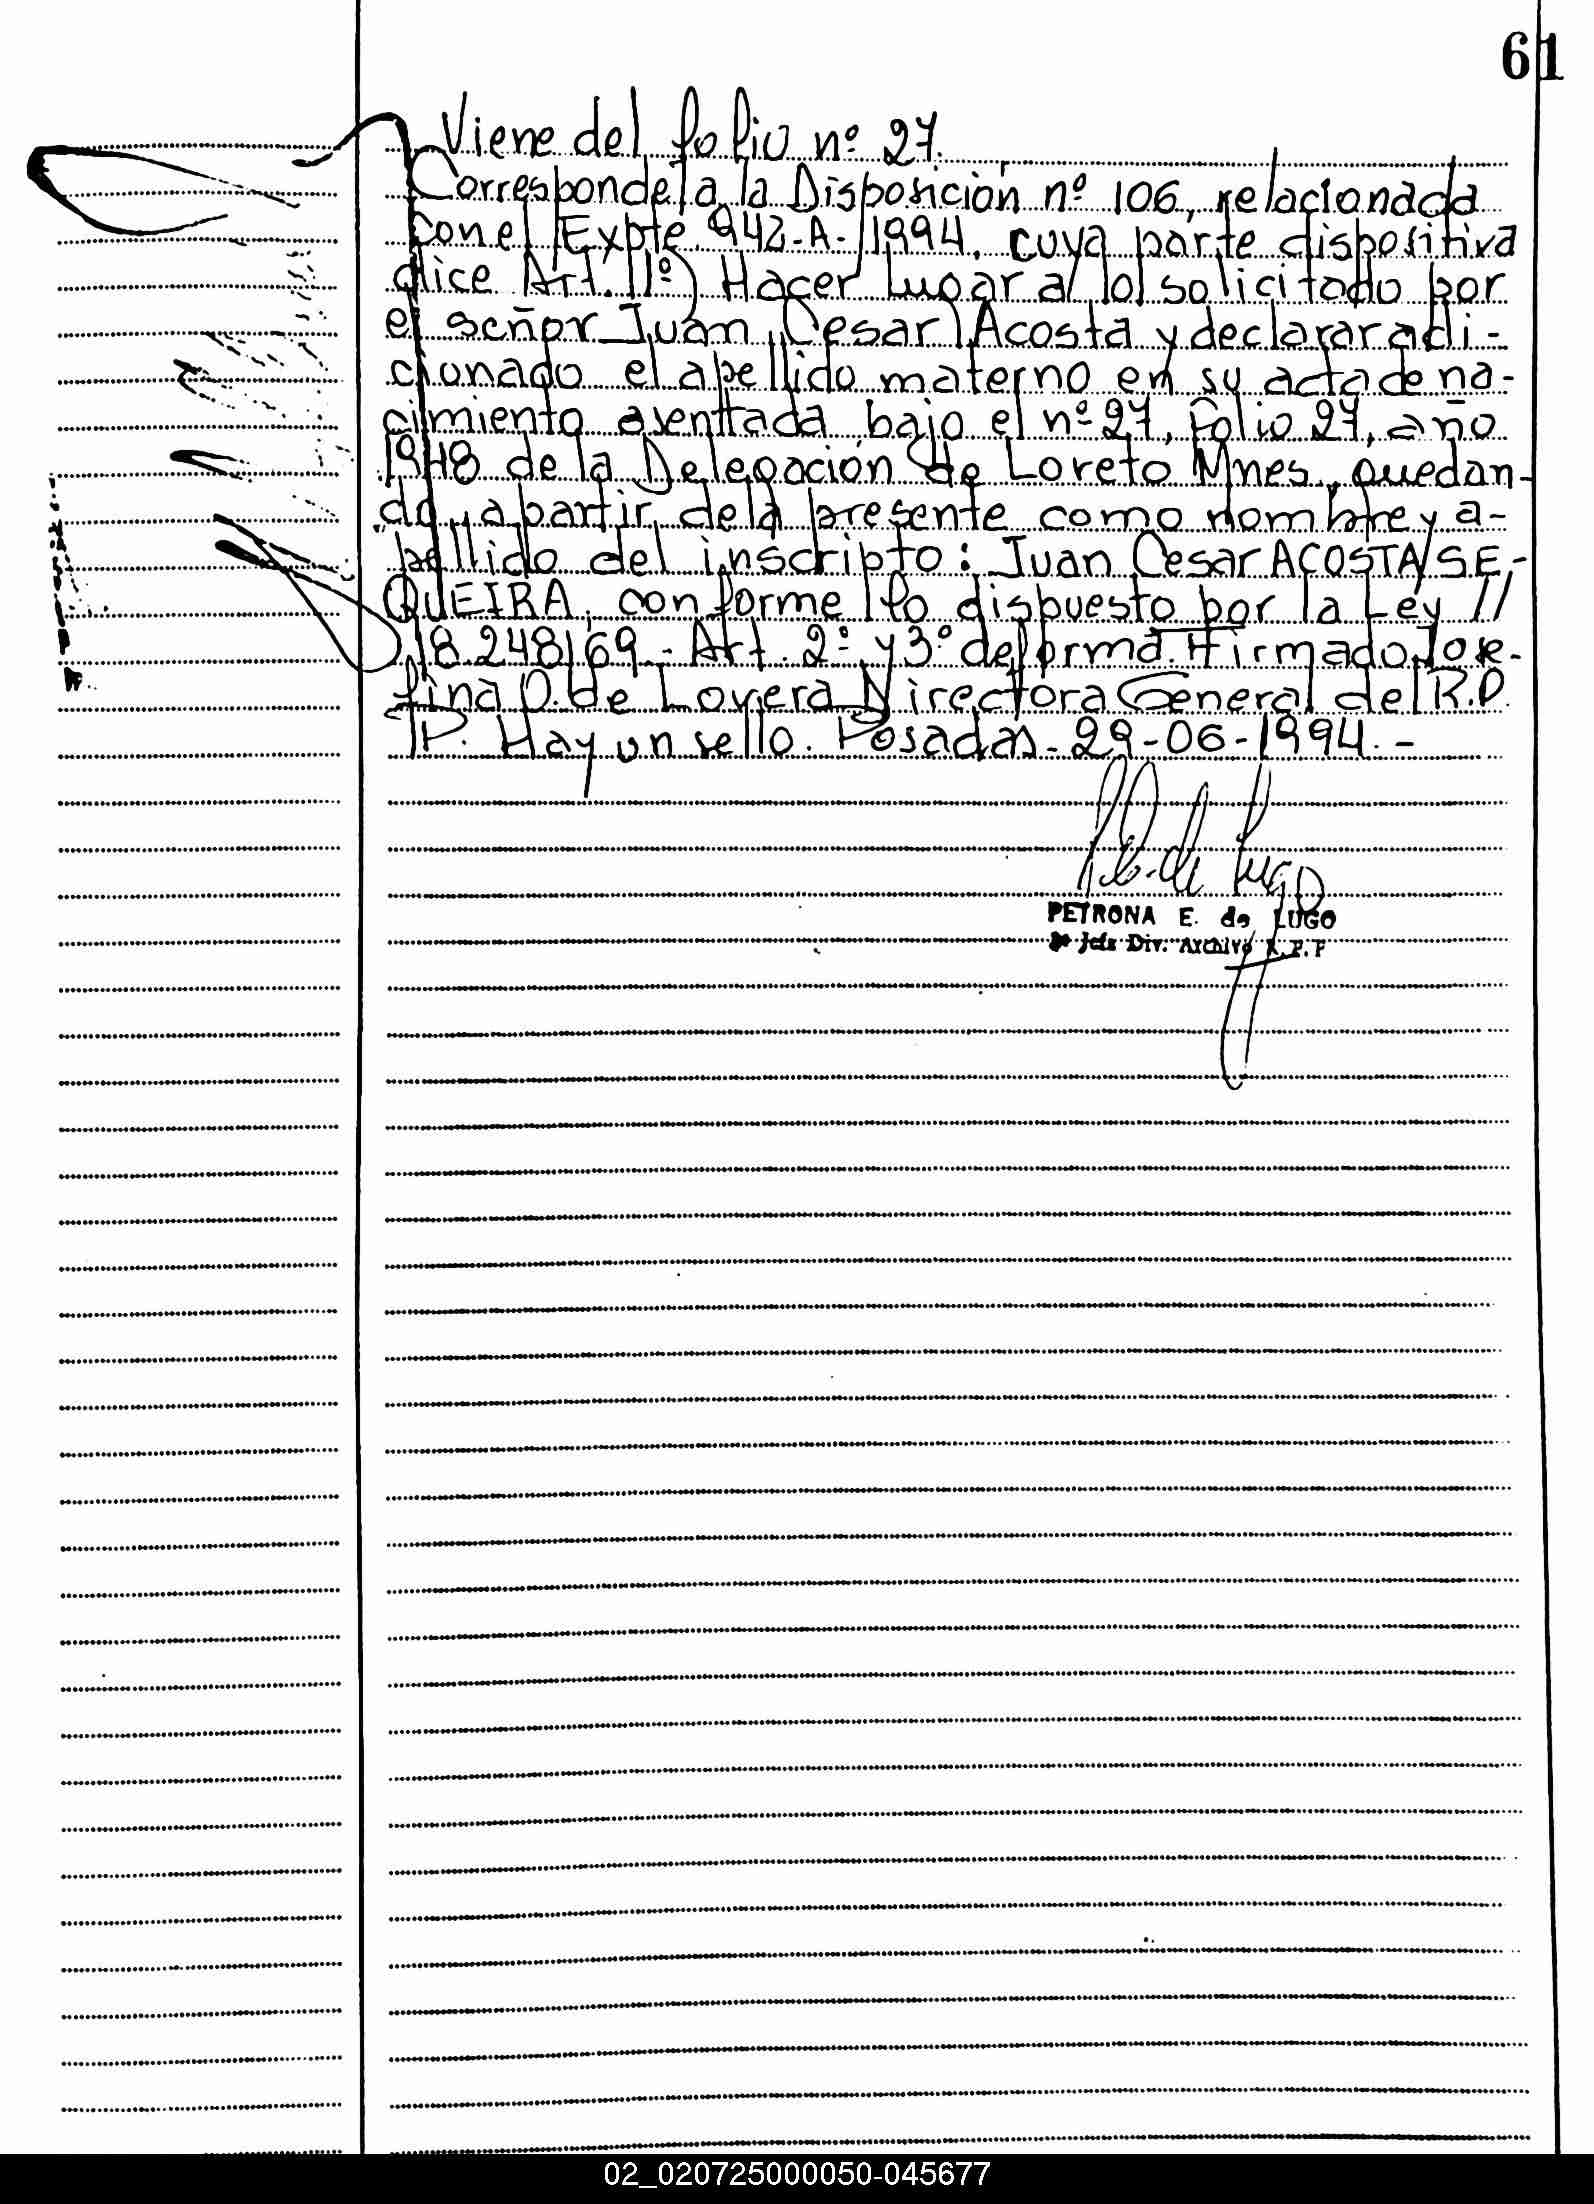 61
Viene del folio nº 27.
Corresponde a la Disposición nº 106, relacionada
con el Expte. 942-A-1994, cuya parte dispositiva
dice Art. 1º) Hacer lugar a lo solicitado por
el señor Juan Cesar Acosta y declarar adi-
cionado el apellido materno en su acta de na-
cimiento asentada bajo el nº 27, folio 27, año
1948 de la Delegación de Loreto Mnes, quedan-
do, a partir de la presente como nombre y a-
pellido del inscripto: Juan Cesar ACOSTA SE-
QUEIRA, conforme lo dispuesto por la Ley //
18.248/69.- Art. 2º y 3º de forma. Firmado Jose-
fina D. de Lovera Directora General del R.P.
P. Hay un sello. Posadas- 29-06-1994.-
PETRONA E. de LUGO
Jefe Div. Archivo R.P.P
02_020725000050-045677